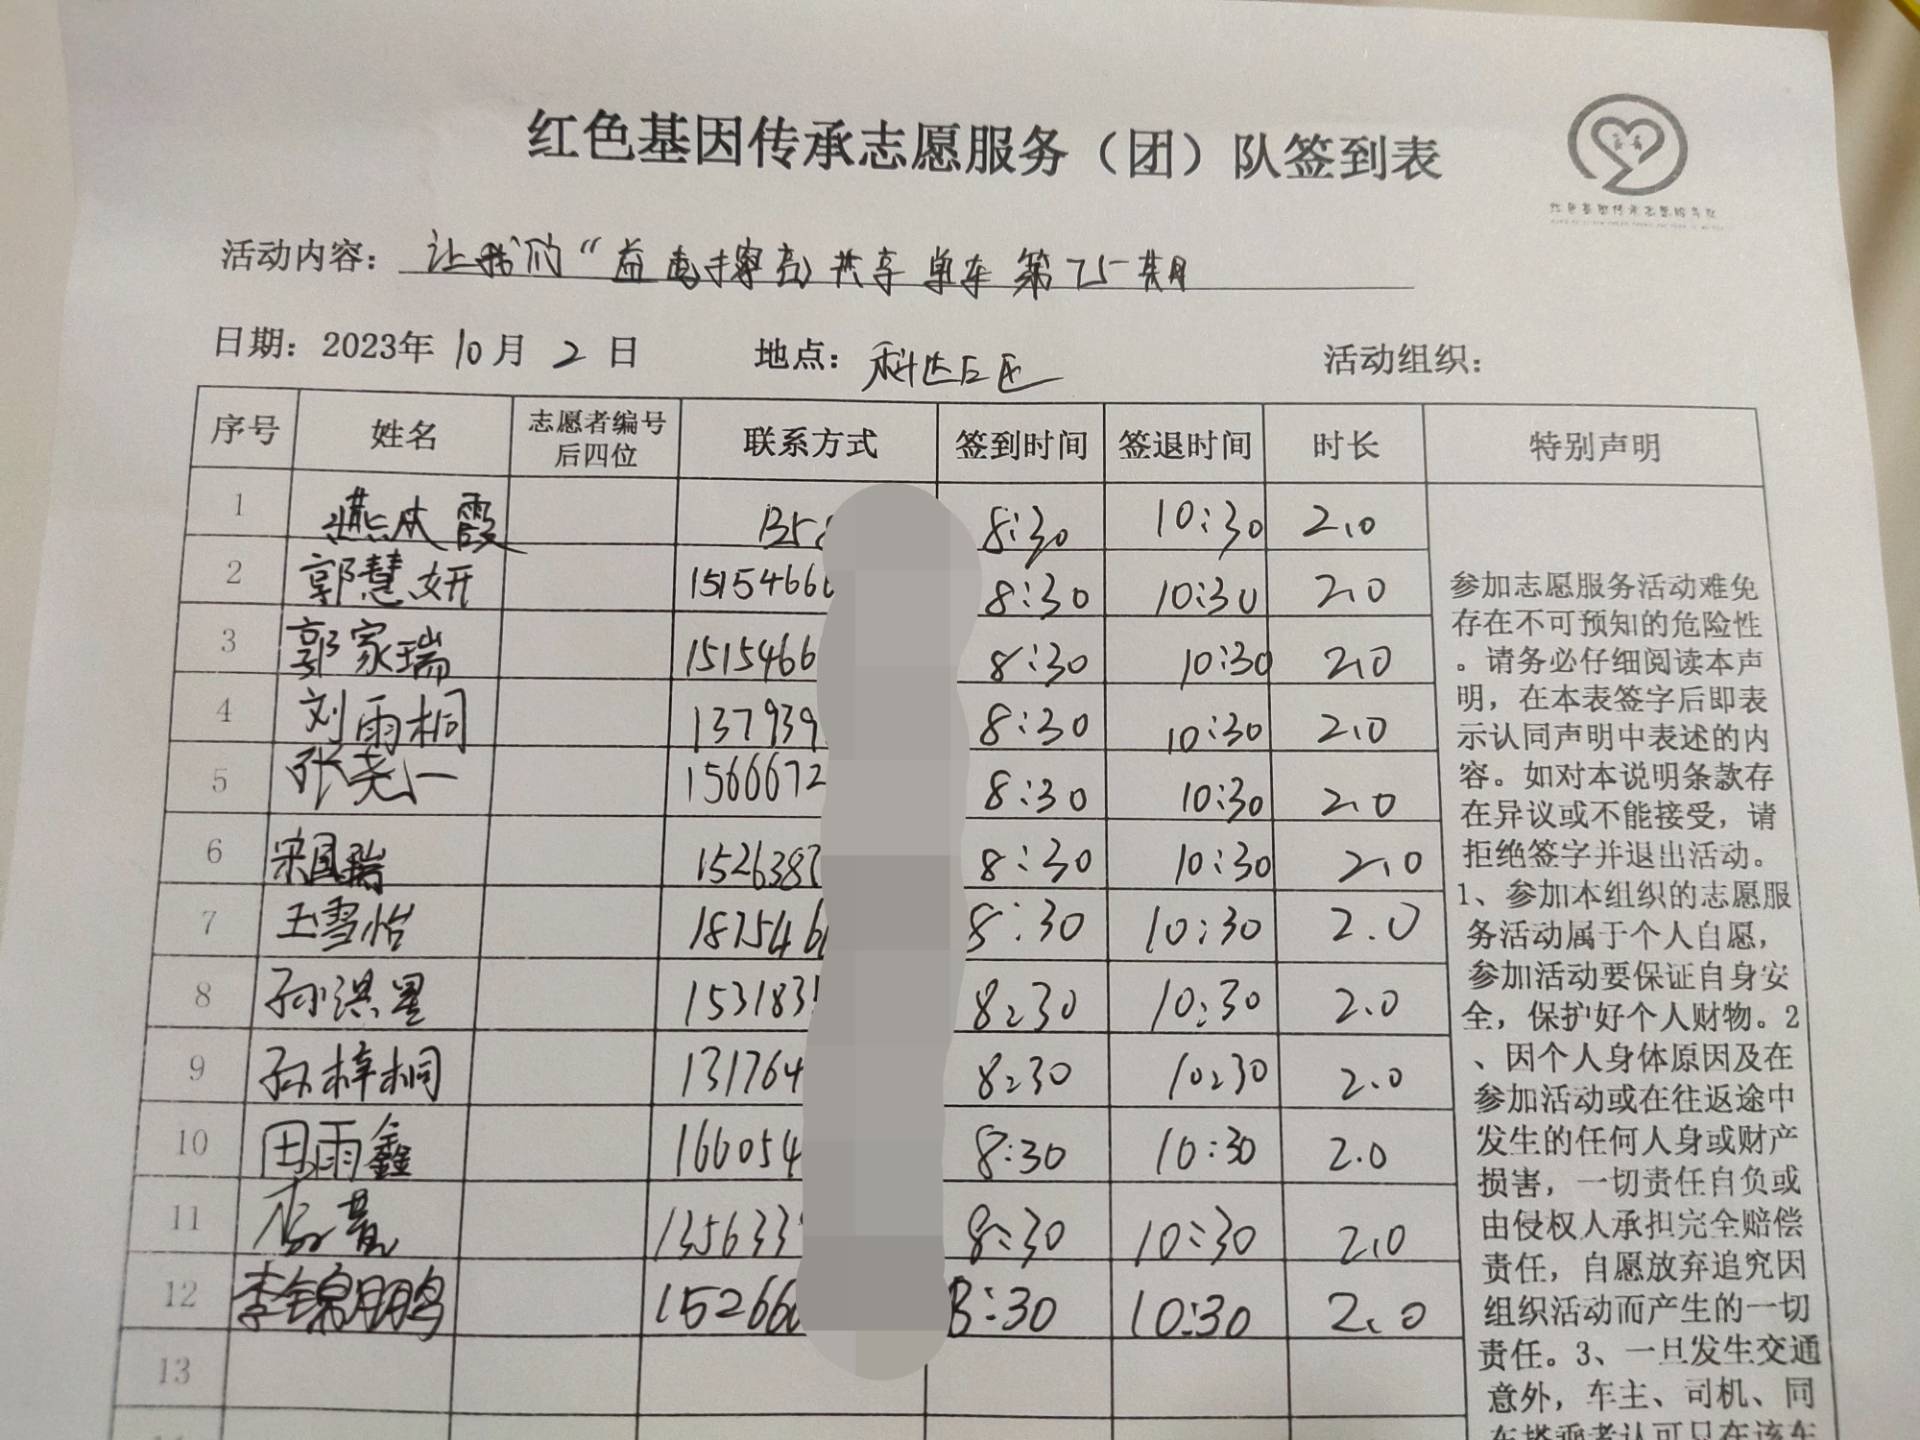 红色基因传承志愿服务（团）队签到表
红色基因传承志愿服务队
活动内容：让我们“益起擦亮共享单车第75期
日期：2023年10月2日 地点： 活动组织：
序号 姓名 志愿者编号后四位 联系方式 签到时间 签退时间 时长 特别声明
1 霞 8:30 10:30 2.0
2 郭慧妍 15154666 8:30 10:30 2.0
3 郭家瑞 1515466 8:30 10:30 2.0
4 刘雨桐 137939 8:30 10:30 2.0
5 张尧一 1566672 8:30 10:30 2.0
6 宋国瑞 1526387 8:30 10:30 2.0
7 王雪怡 1875466 8:30 10:30 2.0
8 孙淇星 153183 8:30 10:30 2.0
9 孙梓桐 131764 8:30 10:30 2.0
10 田雨鑫 166054 8:30 10:30 2.0
11 135633 8:30 10:30 2.0
12 李锦鹏 152666 8:30 10:30 2.0
13
参加志愿服务活动难免
存在不可预知的危险性
。请务必仔细阅读本声
明，在本表签字后即表
示认同声明中表述的内
容。如对本说明条款存
在异议或不能接受，请
拒绝签字并退出活动。
1、参加本组织的志愿服
务活动属于个人自愿，
参加活动要保证自身安
全，保护好个人财物。2
、因个人身体原因及在
参加活动或在往返途中
发生的任何人身或财产
损害，一切责任自负或
由侵权人承担完全赔偿
责任，自愿放弃追究因
组织活动而产生的一切
责任。3、一旦发生交通
意外，车主、司机、同
车搭乘者认可只在该车